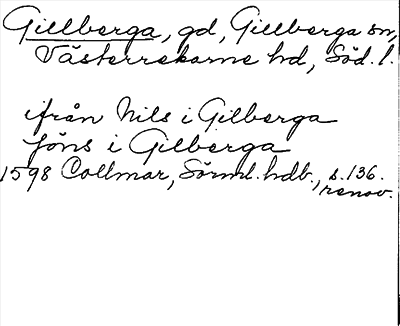 Gillberga, gd, Gillberga sn,
Västerrekarne hd, Söd. l.
ifrån Nils i Gilberga
Jöns i Gilberga
1598 Collmar, Sörml. hdb., s. 136.
renov.